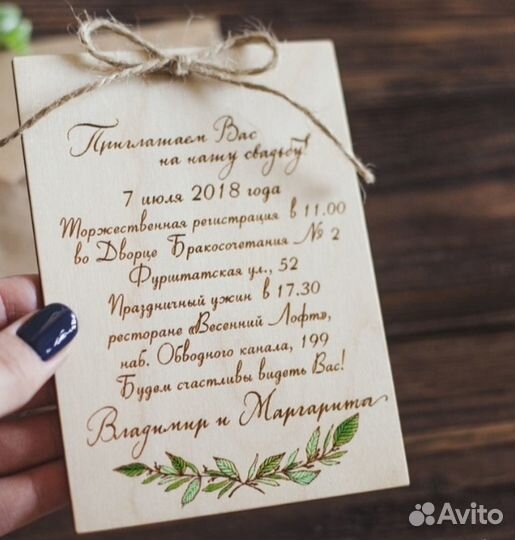 Приглашаем Вас
на нашу свадьбу!
7 июля 2018 года
Торжественная регистрация в 11.00
во Дворце Бракосочетания № 2
Фурштатская ул., 52
Праздничный ужин в 17.30
ресторане «Весенний Лофт»,
наб. Обводного канала, 199
Будем счастливы видеть Вас!
Владимир и Маргарита
Avito